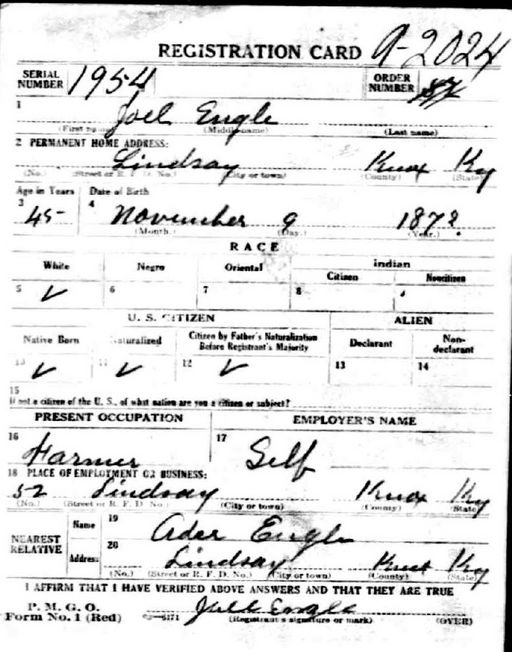 REGISTRATION CARD A-2024
SERIAL NUMBER 1954 ORDER NUMBER
1 Joel Engle
(First name) (Middle name) (Last name)
2 PERMANENT HOME ADDRESS:
Lindsay Knox Ky
(No.) (Street or R. F. D. No.) (City or town) (County) (State)
Age in Years Date of Birth
3 45 4 November 9 1873
(Month.) (Day.) (Year.)
RACE
White Negro Oriental Indian
Citizen Noncitizen
5 ✓ 6 7 8 9
U. S. CITIZEN ALIEN
Native Born Naturalized Citizen by Father's Naturalization Before Registrant's Majority Declarant Non-declarant
10 ✓ 11 ✓ 12 ✓ 13 14
15
If not a citizen of the U. S., of what nation are you a citizen or subject?
PRESENT OCCUPATION EMPLOYER'S NAME
16 Farmer 17 Self
18 PLACE OF EMPLOYMENT OR BUSINESS:
52 Lindsay Knox Ky
(No.) (Street or R. F. D. No.) (City or town) (County) (State)
NEAREST RELATIVE Name 19 Ader Engle
Address 20 Lindsay Knox Ky
(No.) (Street or R. F. D. No.) (City or town) (County) (State)
I AFFIRM THAT I HAVE VERIFIED ABOVE ANSWERS AND THAT THEY ARE TRUE
P. M. G. O.
Form No. 1 (Red) Joel Engle
(Registrant's signature or mark) (OVER)